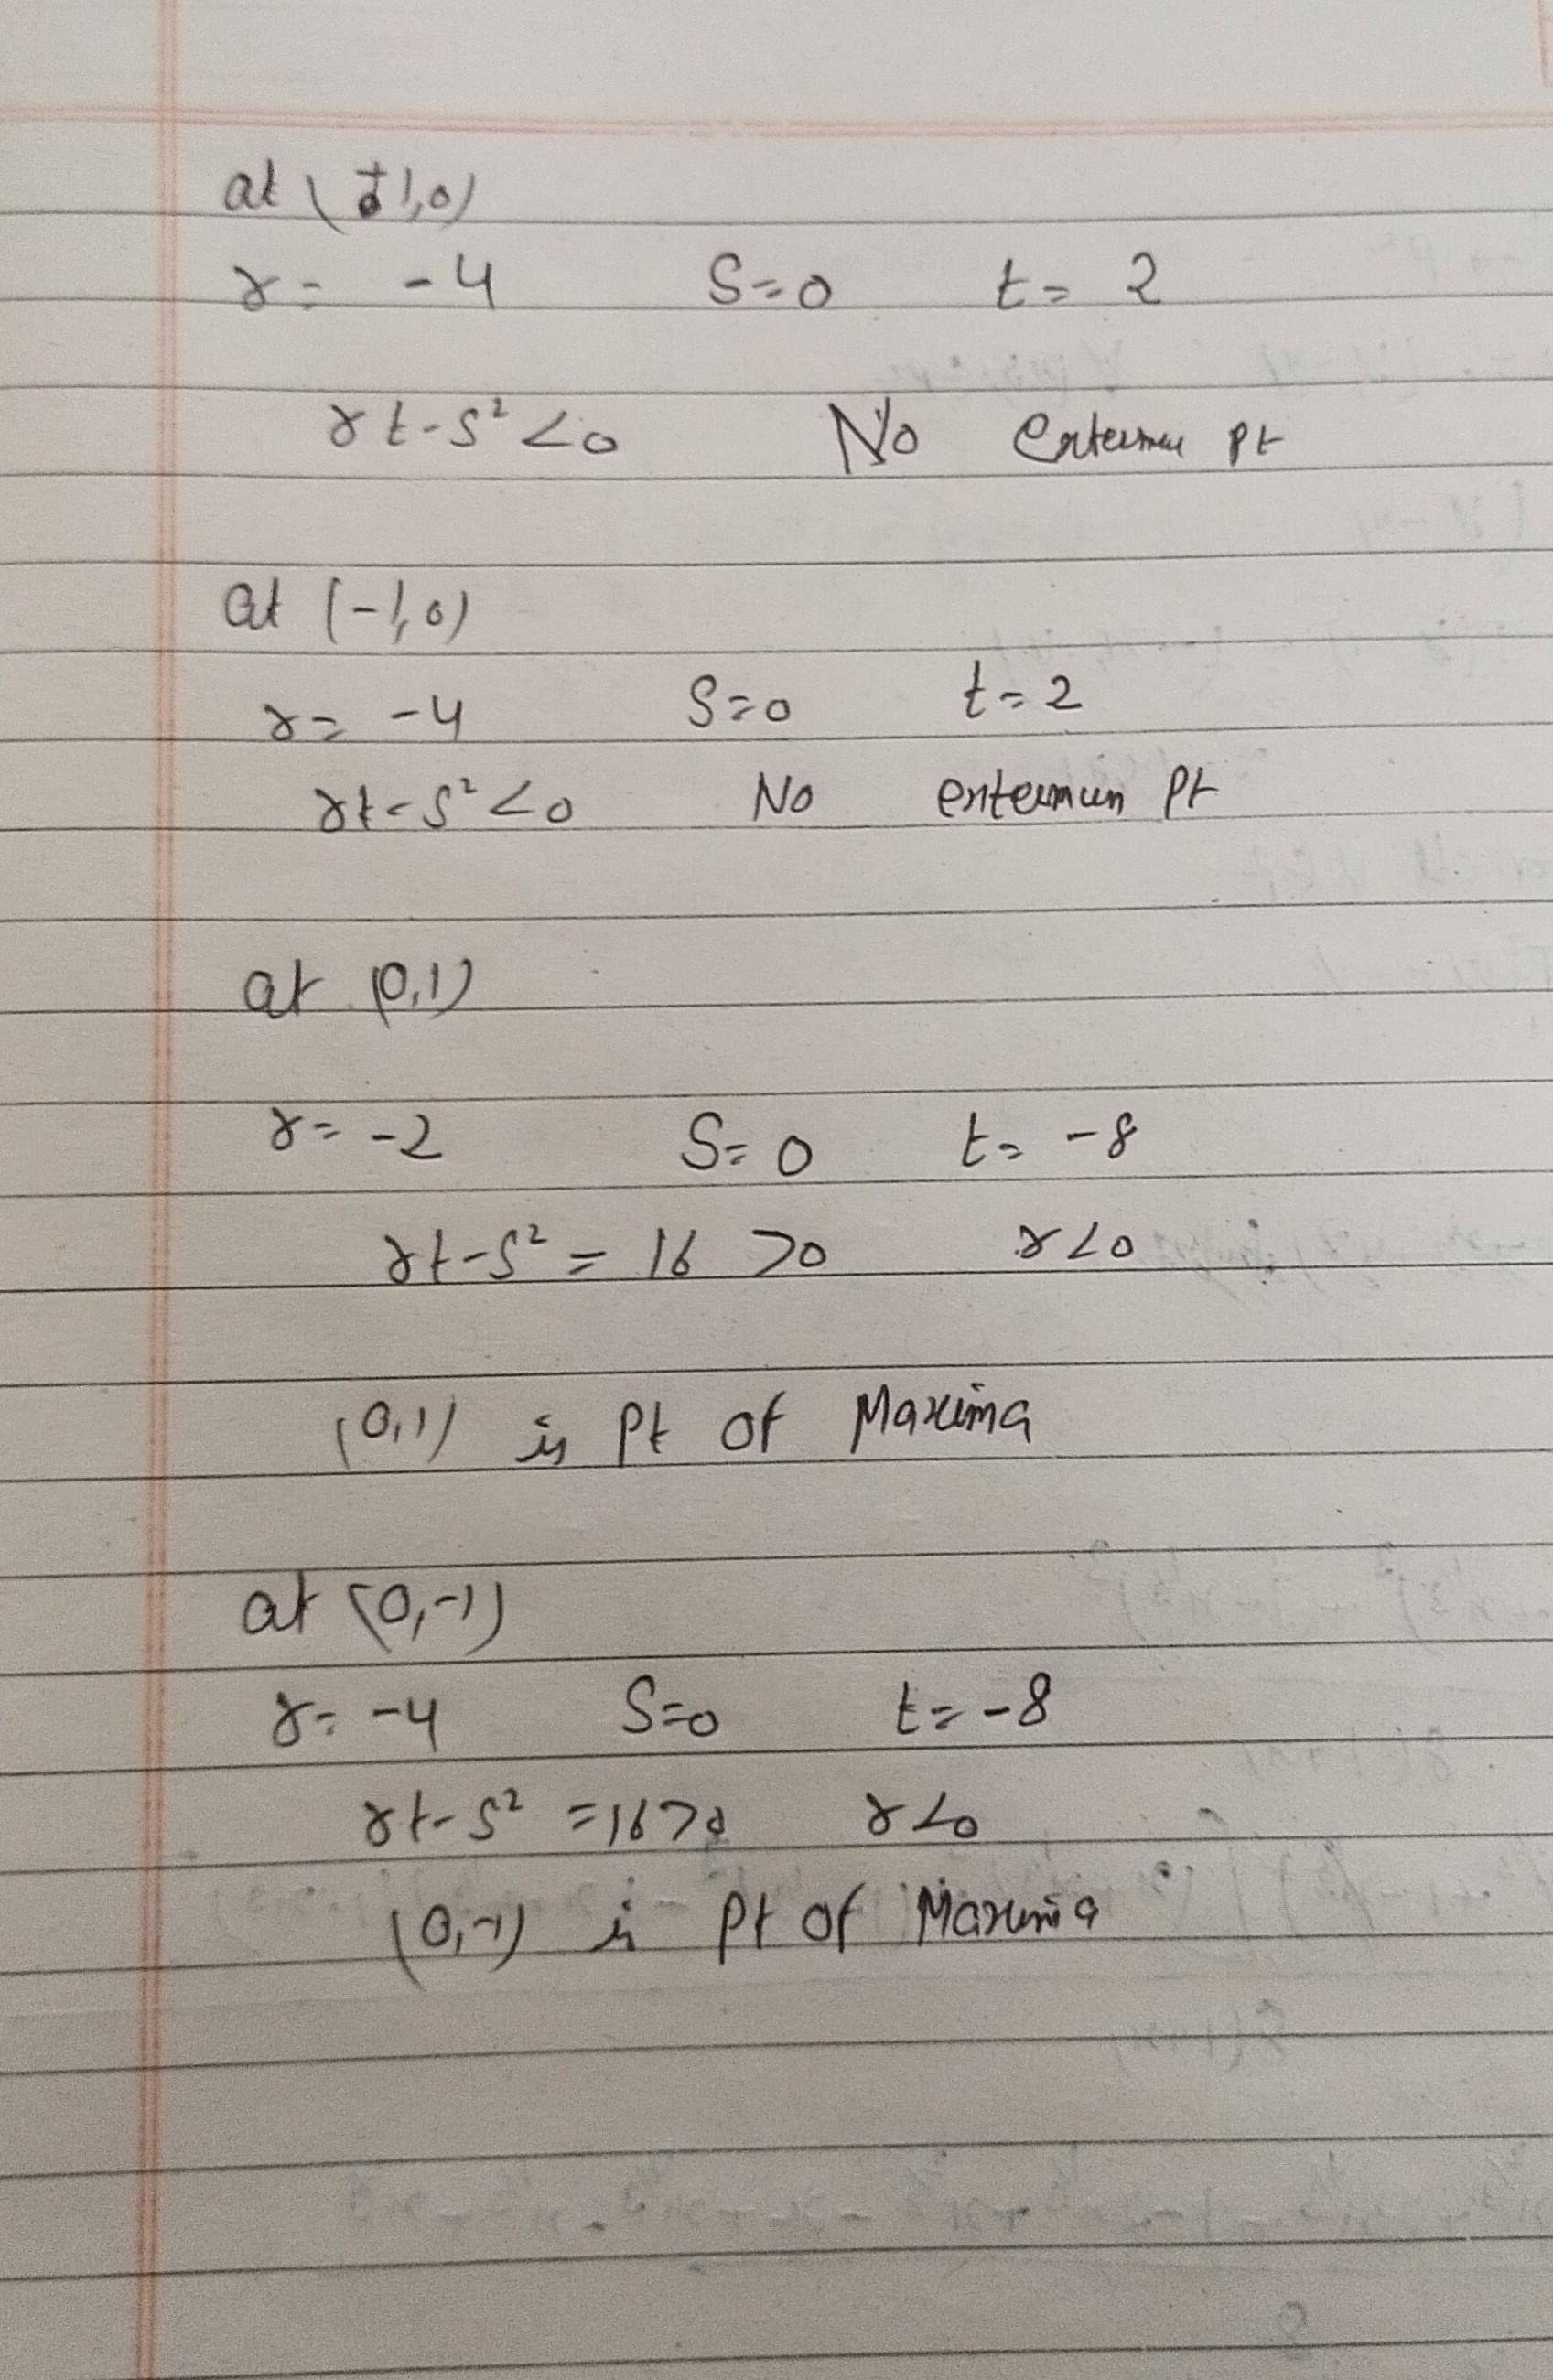 at (±1,0)
r= -4 S=0 t= 2
rt-s²<0 No extermu pt
at (-1,0)
r= -4 S=0 t=2
rt-s²<0 No extermum Pt
at (0,1)
r= -2 S=0 t= -8
rt-s² = 16 >0 r<0
(0,1) is Pt of Maxima
at (0,-1)
r= -4 S=0 t= -8
rt-s² =16>0 r<0
(0,-1) is Pt of Maxima